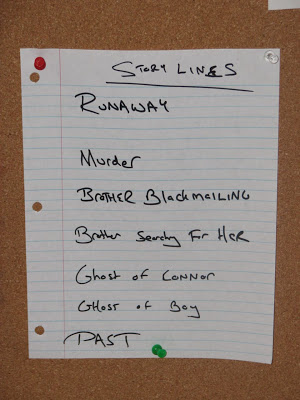 STORY LINES
RUNAWAY
Murder
BROTHER BlackmAILING
Brother Searching For HER
Ghost of CONNOR
GHost of Boy
PAST